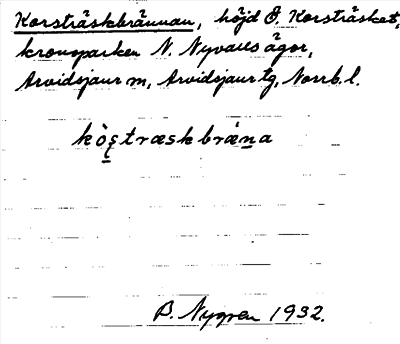 Korsträskbrännan, höjd Ö. Korsträsket,
kronoparken N. Nyvalls ägor,
Arvidsjaur m, Arvidsjaur tg, Norrb. l.
kò̱ʂtræskbrǽṉa
B. Nygren 1932.